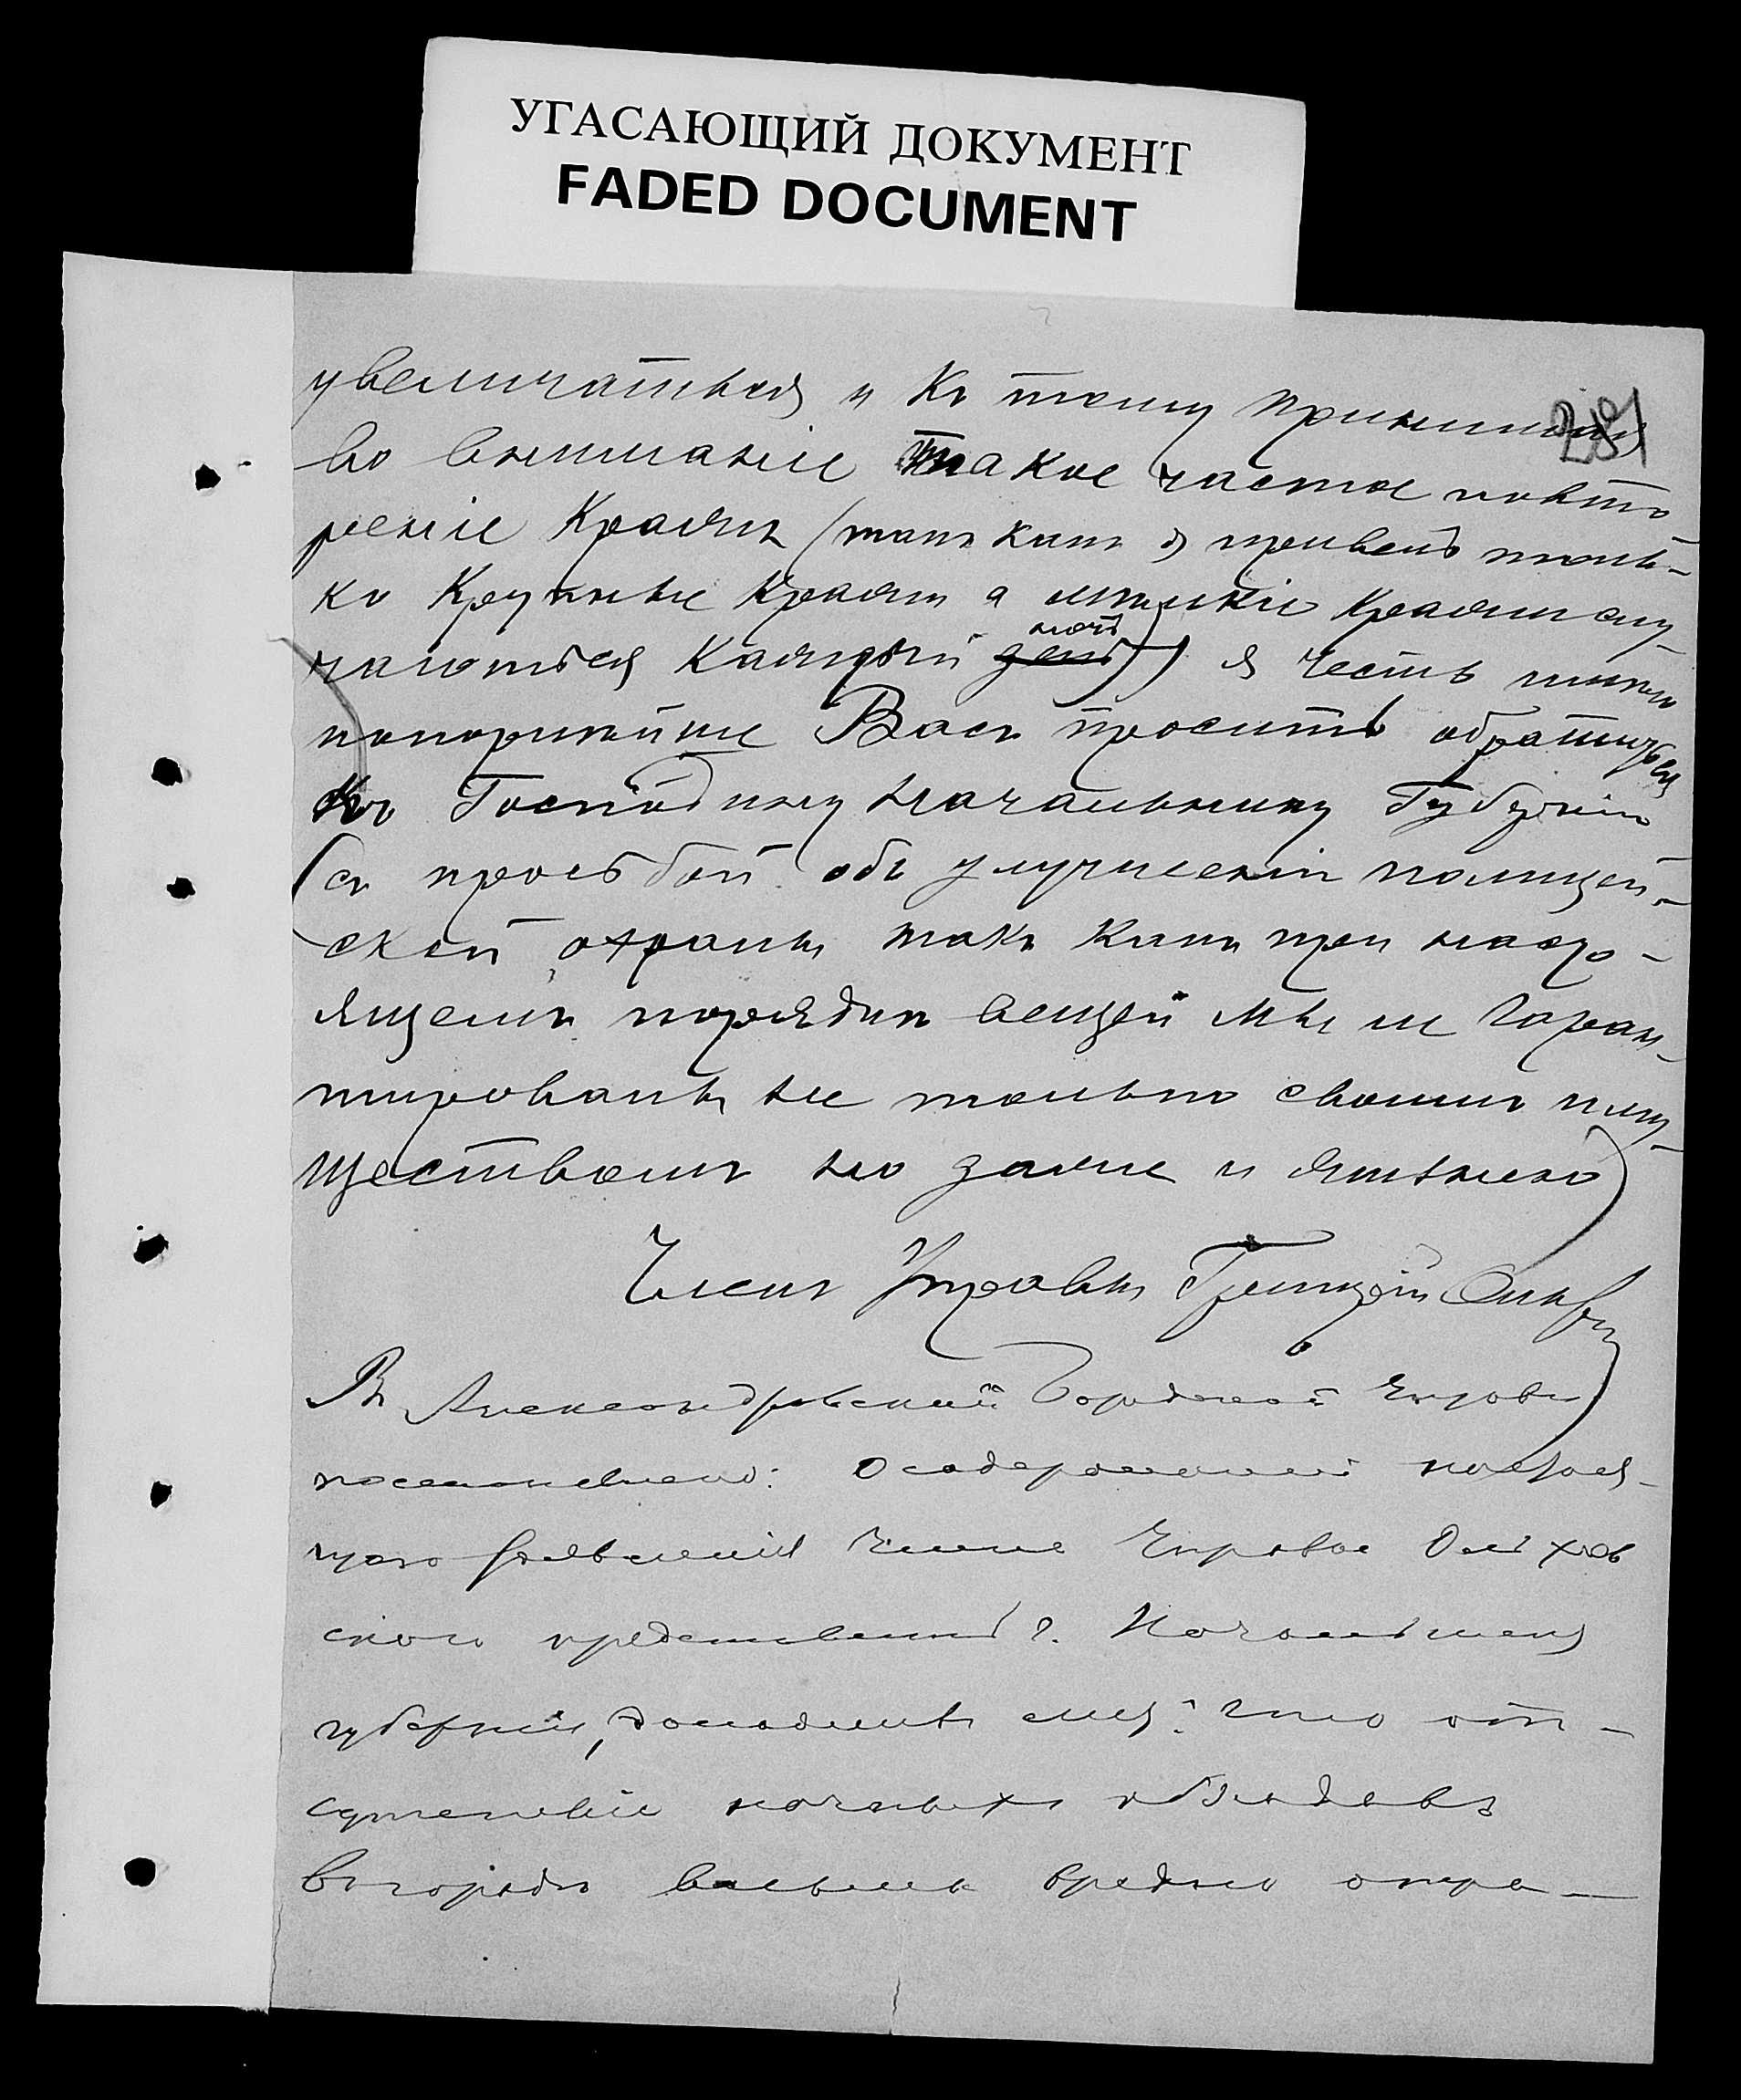 УГАСАЮЩИЙ ДОКУМЕНТ
FADED DOCUMENT
увеличаться и къ тому принимая
во вниманіе такое частое повто
реніе кражъ (такъ какъ я привелъ толь-
ко крупные кражи а мелкіе кражи слу
чаются каждый день ночь)) я честь имѣю
покорнѣйше Васъ просить обратиться
къ Господину Начальнику Губерніи
съ просьбой объ улучшеніи полицей-
ской охраны такъ какъ при насто-
ящемъ порядки вещей мы не гаран-
тированы не только своимъ иму-
ществомъ но даже и жизнью
Членъ Управы
Въ Александровской Городской Управѣ
постановлено: О содержаніи настоя-
щаго заявленія Члена Управы Ольхов
скаго представить г. Начальнику
губерніи, доложить ему: что от-
сутствіе ночныхъ обходовъ
въ городѣ весьма вредно отра-